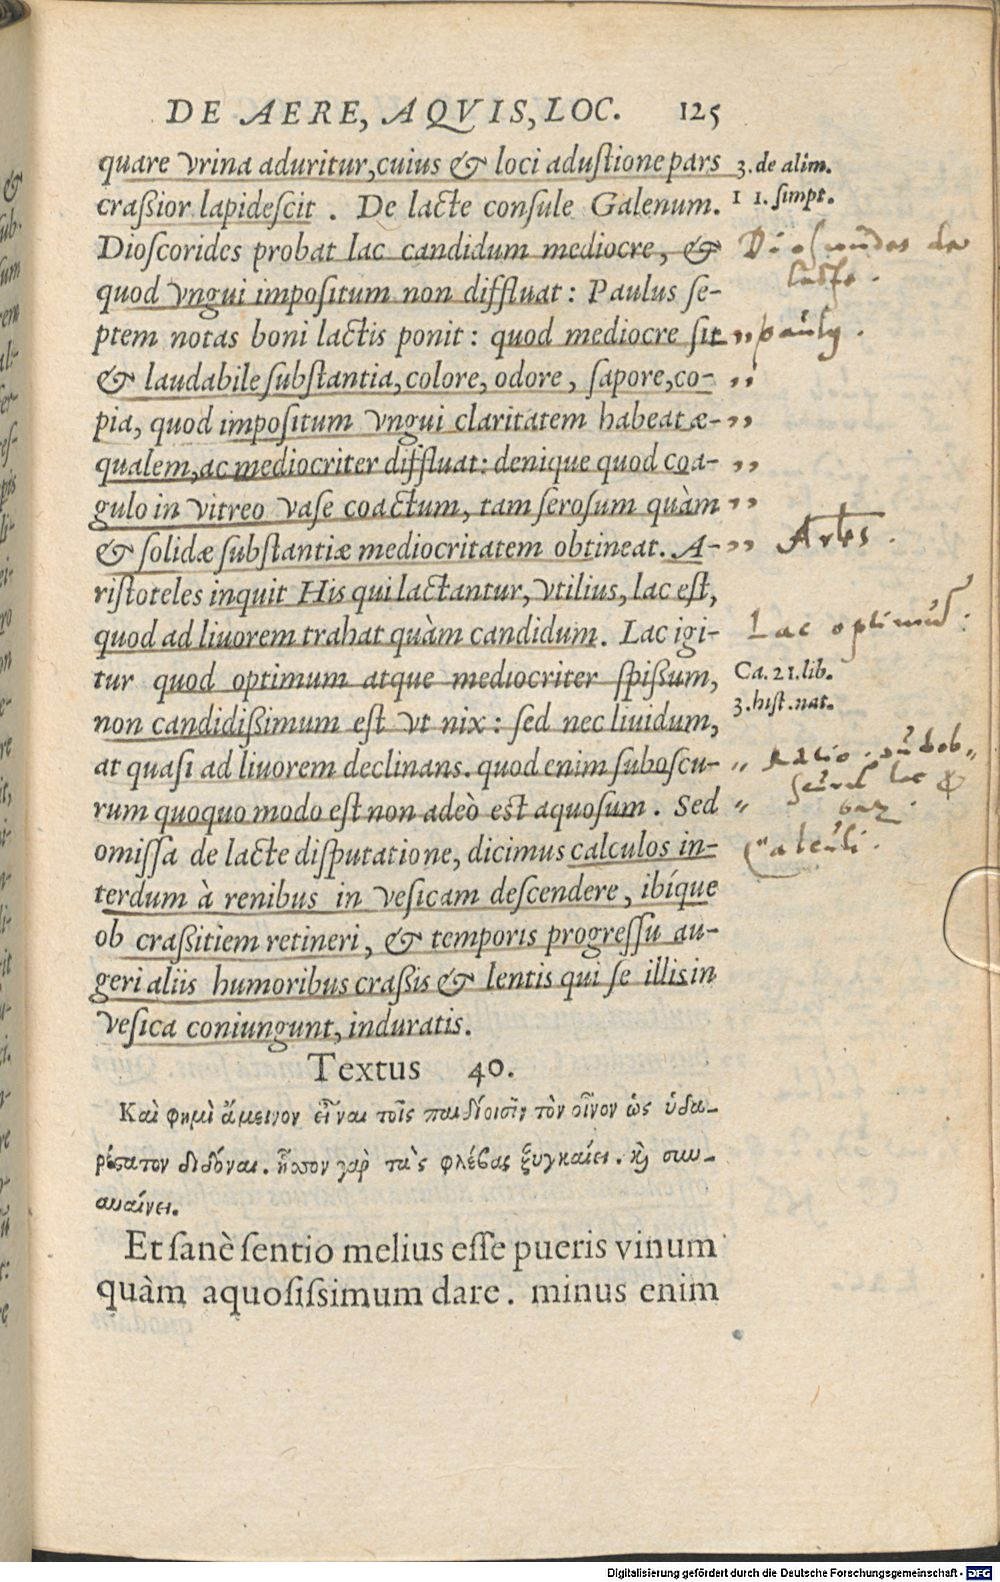 DE AERE, AQVIS, LOC. 125
quare vrina aduritur, cuius & loci adustione pars
craßior lapidescit . De lacte consule Galenum.
Dioscorides probat lac candidum mediocre, &
quod vngui impositum non diffluat: Paulus se-
ptem notas boni lactis ponit: quod mediocre sit
& laudabile substantia, colore, odore, sapore, co-
pia, quod impositum vngui claritatem habeat æ-
qualem, ac mediocriter diffluat: denique quod coa-
gulo in vitreo vase coactum, tam serosum quàm
& solidæ substantiæ mediocritatem obtineat. A-
ristoteles inquit His qui lactantur, vtilius, lac est,
quod ad liuorem trahat quàm candidum. Lac igi-
tur quod optimum atque mediocriter spißum,
non candidißimum est vt nix: sed nec liuidum,
at quasi ad liuorem declinans. quod enim suboscu-
rum quoquo modo est non adeò est aquosum. Sed
omissa de lacte disputatione, dicimus calculos in-
terdum à renibus in vesicam descendere, ibíque
ob craßitiem retineri, & temporis progressu au-
geri aliis humoribus craßis & lentis qui se illis in
vesica coniungunt, induratis.
Textus 40.
Καὶ φημὶ ἄμεινον εἶναι τοῖς παιδίοισῖν τὸν οἶνον ὡς ὑδα-
ρέστατον διδόναι. ἧσσον γὰρ τὰς φλέβας ξυγκαίει. καὶ συν-
αυαίνει.
Et sanè sentio melius esse pueris vinum
quàm aquosissimum dare. minus enim
3. de alim.
11. simpt.
Dioscorides de
lacte.
paulg.
Artes.
Lac optimū.
Ca. 21. lib.
3. hist. nat.
Ratio
lac &
Calculi.
Digitalisierung gefördert durch die Deutsche Forschungsgemeinschaft - DFG